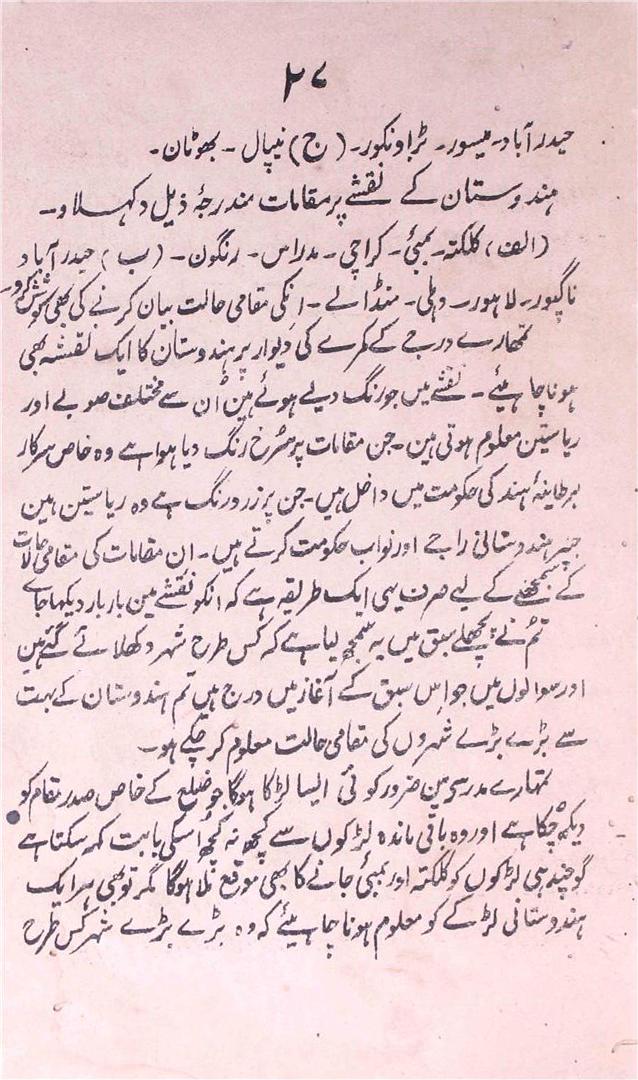 ۲۷
حیدرآباد۔ میسور۔ ٹراونکور۔ (ج) نیپال۔ بھوٹان۔
ہندوستان کے نقشے پر مقامات مندرجۂ ذیل دکہلاو۔
(الف) کلکتہ۔ بمبئی۔ کراچی۔ مدراس۔ رنگون۔ (ب) حیدرآباد
ناگپور۔ لاہور۔ دہلی۔ منڈالے۔ انکی مقامی حالت بیان کرنے کی بھی کوشش کرو۔
تمھارے درجے کے کمرے کی دیوار پر ہندوستان کا ایک نقشہ بھی
ہونا چاہیئے۔ نقشے میں جو رنگ دیے ہوئے ہین اُن سے مختلف صوبے اور
ریاستین معلوم ہوتی ہین۔ جن مقامات پر سُرخ رنگ دیا ہوا ہے وہ خاص سرکار
برطانیۂ ہند کی حکومت میں داخل ہیں۔ جن پر زرد رنگ ہے وہ ریاستین ہین
جنپر ہندوستانی راجے اور نواب حکومت کرتے ہیں۔ ان مقامات کی مقامی حالات
کے سمجھنے کے لیے صرف یہی ایک طریقہ ہے کہ انکو نقشے مین بار بار دیکھا جاے
تم نے پچھلے سبق میں یہ سمجھ لیا ہے کہ کس طرح شہر دکھلائے گئے ہین
اور سوالوں میں جو اس سبق کے آغاز میں درج ہیں تم ہندوستان کے بہت
سے بڑے بڑے شہروں کی مقامی حالت معلوم کر چکے ہو۔
تمہارے مدرسے مین ضرور کوئی ایسا لڑکا ہوگا جو ضلع کے خاص صدر مقام کو
دیکھ چکا ہے اور وہ باقی ماندہ لڑکوں سے کچھ نہ کچھ اُسکی بابت کہہ سکتا ہے
گو چند ہی لڑکوں کو کلکتہ اور بمبئی جانے کا بھی موقع ملا ہوگا مگر تو بھی ہر ایک
ہندوستانی لڑکے کو معلوم ہونا چاہیئے کہ وہ بڑے بڑے شہر کس طرح